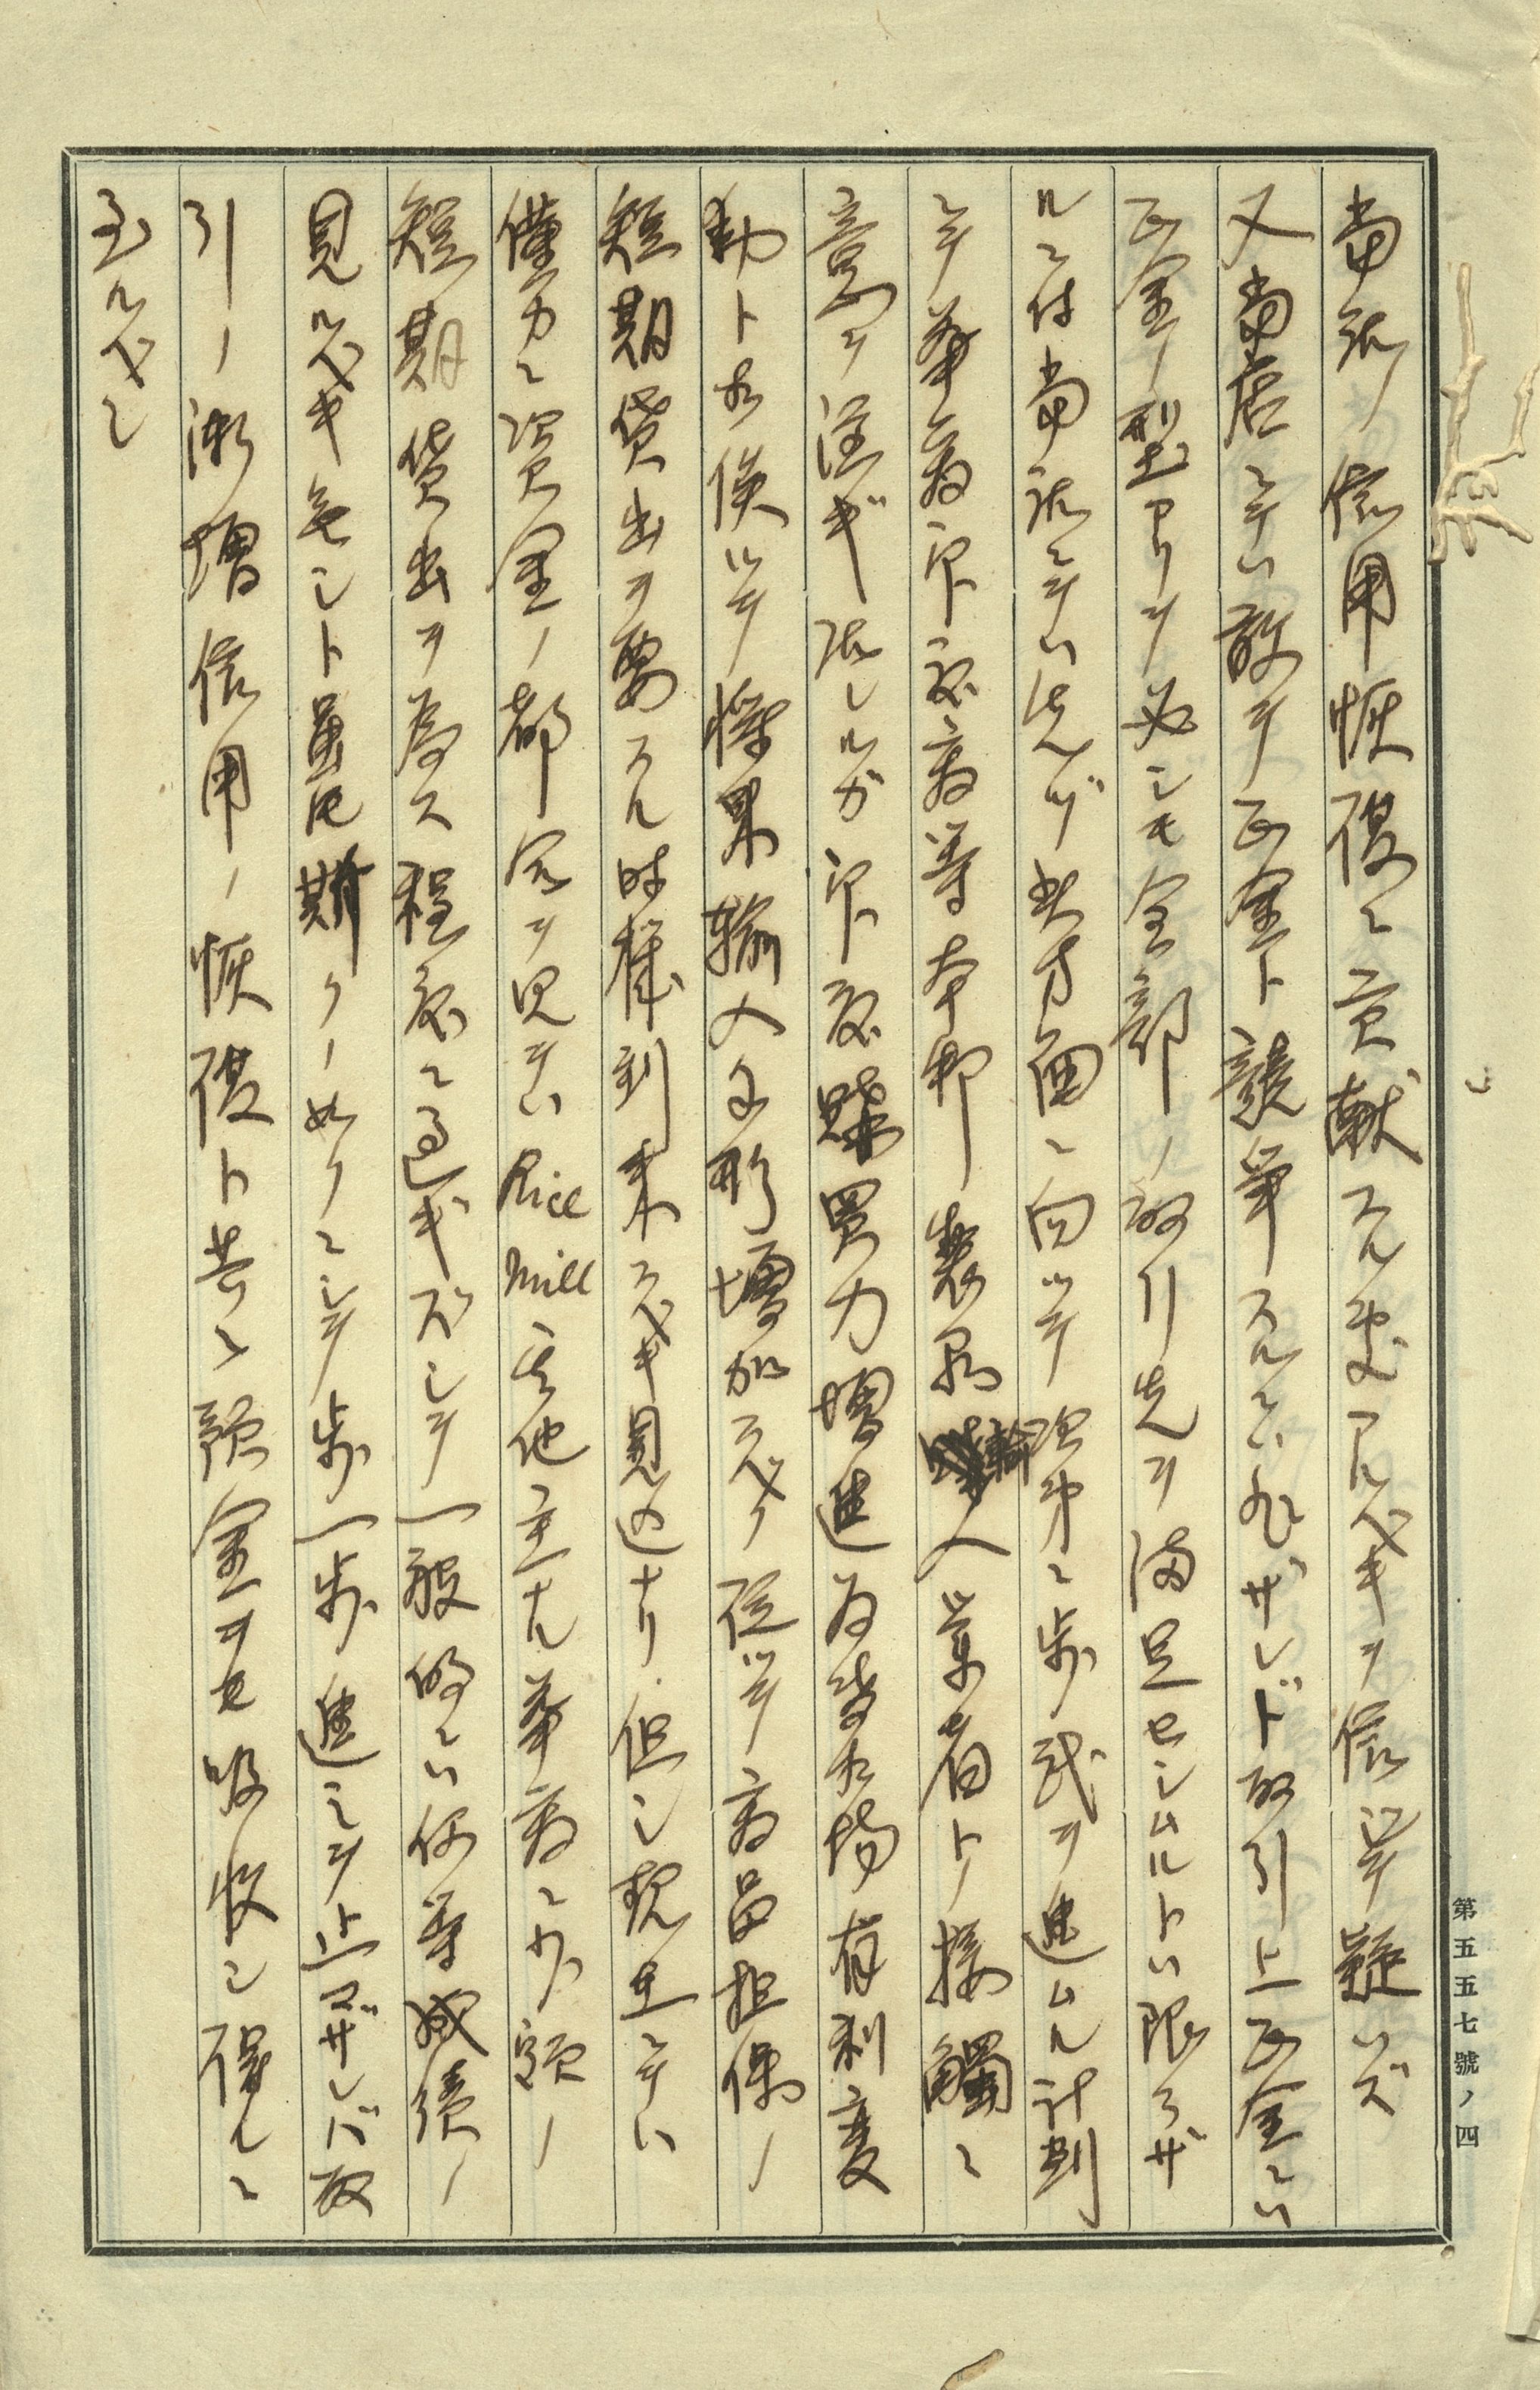 当行ノ信用恢復ニ貢献スル処アルベキヲ信ジテ疑ハズ
又当店ニテハ敢テ正金ト競争スルニハ非ザレド取引上正金ニハ
正金ノ型アリテ必ズシモ全部ノ取引先ヲ満足セシムルトハ限ラザ
ルニ付当行ニテハ先ヅ此方面ニ向ツテ漸次ニ歩武ヲ進ムル計劃
ニテ華商印度商等本邦製品輸入業者トノ接触ニ
意ヲ注ギ居レルガ印度購買力増進為替相場有利変
動ト相俟ツテ将来輸入手形増加スベク従ツテ商品担保ノ
短期貸出ヲ要スル時機到来スベキ見込ナリ但シ現在ニテハ
僅カニ資金ノ都合ヲ見テハ Rice Mill 其他主ナル華商ニ少額ノ
短期貸出ヲ為ス程度ニ過ギズシテ一般的ニハ何等成績ノ
見ルベキ無シト虽モ斯クノ如クニシテ歩一歩進ミテ止マザレバ取
引ノ漸増信用ノ恢復ト共ニ預金ヲモ吸収シ得ルニ
至ルベシ
第五五七號ノ四